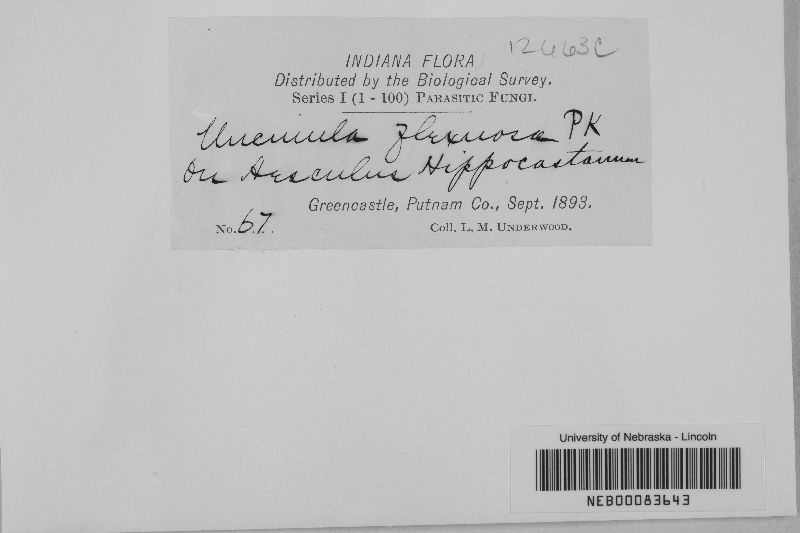 12663C
INDIANA FLORA
Distributed by the Biological Survey.
Series I (1 - 100) Parasitic Fungi.
Uncinula flexuosa PK
On Aesculus Hippocastanum
Greencastle, Putnam Co., Sept. 1893.
No. 67.
Coll. L. M. Underwood.
University of Nebraska - Lincoln
NEB00083643